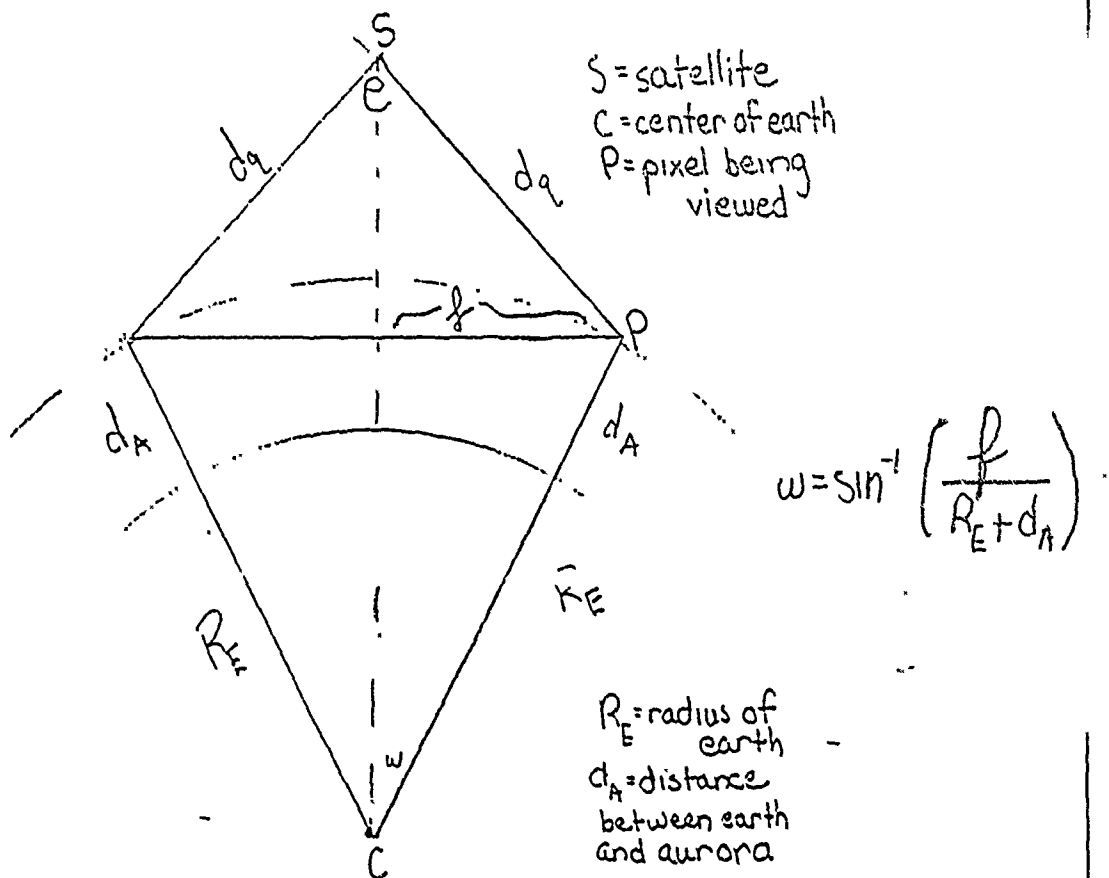 S
e
S=satellite
C=center of earth
P=pixel being
viewed
dq
dq
f
P
d_A
d_A
w=sin⁻¹ (f / (R_E + d_A))
R_E
R_E
w
C
R_E=radius of
earth
d_A=distance
between earth
and aurora